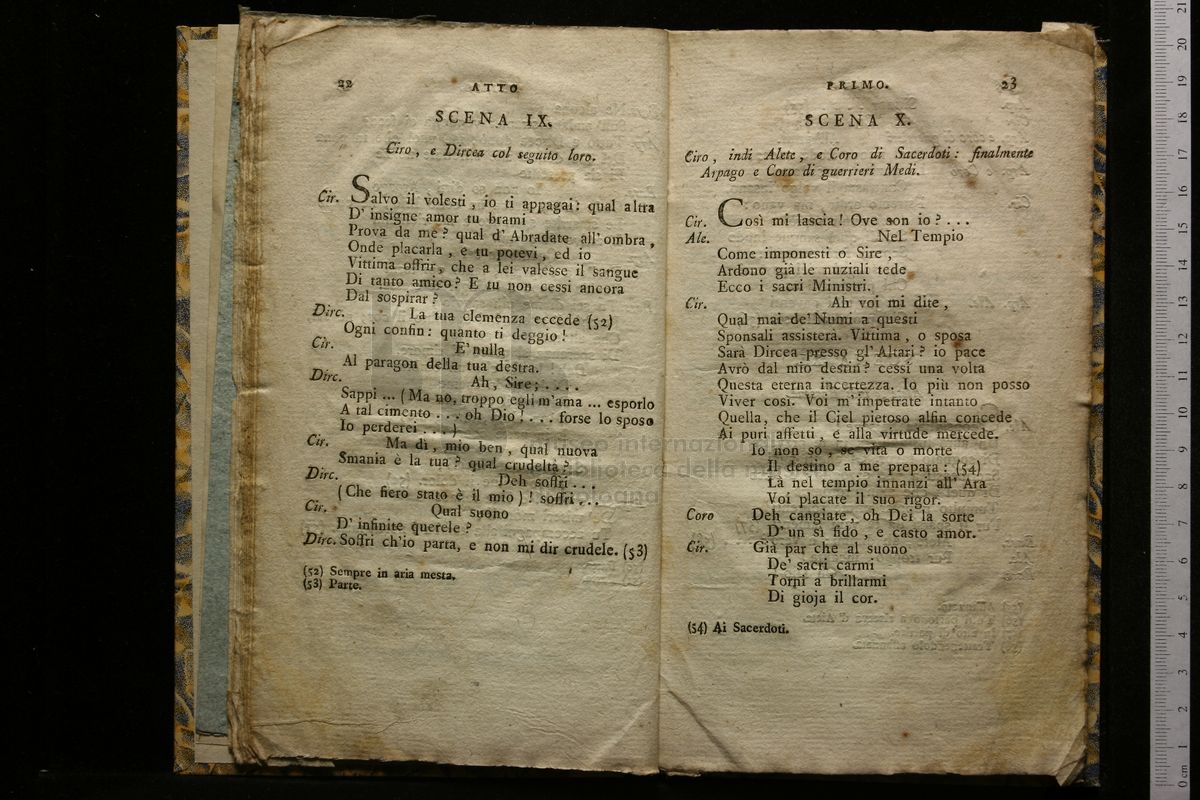 22
ATTO
SCENA IX.
Ciro, e Dircea col seguito loro.
Cir. Salvo il volesti, io ti appagai: qual altra
D' insigne amor tu brami
Prova da me? qual d' Abradate all' ombra,
Onde placarla, e tu potevi, ed io
Vittima offrir, che a lei valesse il sangue
Di tanto amico? E tu non cessi ancora
Dal sospirar?
Dirc. La tua clemenza eccede (52)
Ogni confin: quanto ti deggio!
Cir. E' nulla
Al paragon della tua destra.
Dirc. Ah, Sire; ....
Sappi ... (Ma no, troppo egli m'ama ... esporlo
A tal cimento ... oh Dio! .... forse lo sposo
Io perderei ....)
Cir. Ma dì, mio ben, qual nuova
Smania è la tua? qual crudeltà?
Dirc. Deh soffri ...
(Che fiero stato è il mio)! soffri ...
Cir. Qual suono
D' infinite querele?
Dirc. Soffri ch'io parta, e non mi dir crudele. (53)
(52) Sempre in aria mesta.
(53) Parte.
PRIMO.
23
SCENA X.
Ciro, indi Alete, e Coro di Sacerdoti: finalmente
Arpago e Coro di guerrieri Medi.
Cir. Così mi lascia! Ove son io? ...
Ale. Nel Tempio
Come imponesti o Sire,
Ardono già le nuziali tede
Ecco i sacri Ministri.
Cir. Ah voi mi dite,
Qual mai de' Numi a questi
Sponsali assisterà. Vittima, o sposa
Sarà Dircea presso gl' Altari? io pace
Avrò dal mio destin? cessi una volta
Questa eterna incertezza. Io più non posso
Viver così. Voi m'impetrate intanto
Quella, che il Ciel pietoso alfin concede
Ai puri affetti, e alla virtude mercede.
Io non so, se vita o morte
Il destino a me prepara: (54)
Là nel tempio innanzi all' Ara
Voi placate il suo rigor.
Coro Deh cangiate, oh Dei la sorte
D' un sì fido, e casto amor.
Cir. Già par che al suono
De' sacri carmi
Torni a brillarmi
Di gioja il cor.
(54) Ai Sacerdoti.
museo internazional
biblioteca della m
bologna
0 cm 1 2 3 4 5 6 7 8 9 10 11 12 13 14 15 16 17 18 19 20 21